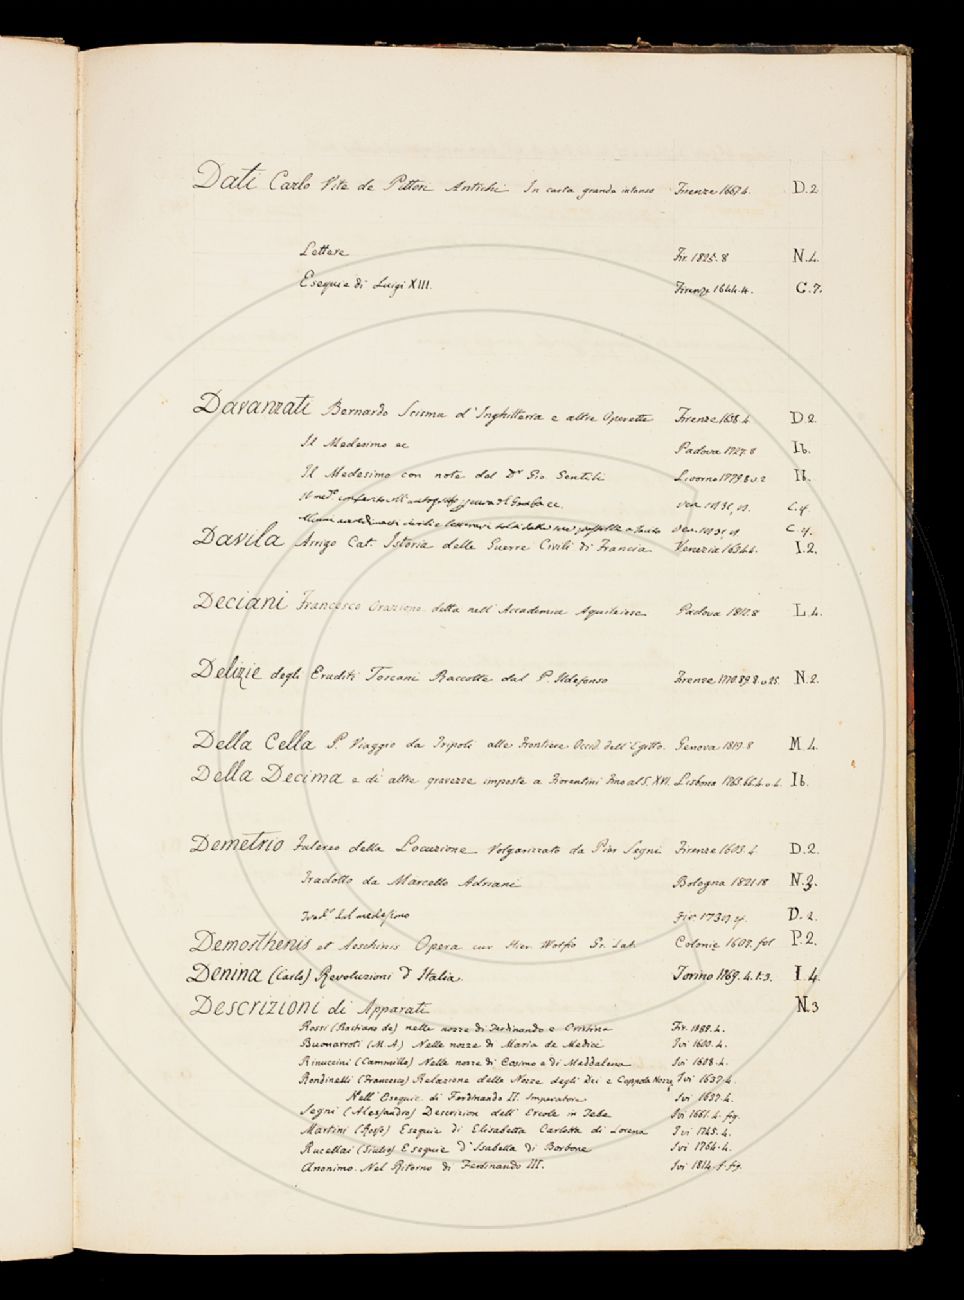 Dati Carlo Vite de Pittori Antichi In carta grande intonso Firenze 1667.4. D.2
Lettere Fir. 1825.8 N.4.
Esequie di Luigi XIII. Firenze 1644.4. G.7.
Davanzati Bernardo Scisma d'Inghilterra e altre Operette Firenze 1638.4 D.2.
Il Medesimo ec Padova 1727.8 Ib.
Il Medesimo con note del Dr. Gio Gentili Livorno 1779.8 v.2 Ib.
Il med. C.4.
C.4.
Davila Arrigo Cat. Istoria delle Guerre Civili di Francia Venezia 1634.4. I.2.
Deciani Francesco Orazione detta nell'Accademia Aquileiese Padova 1812.8 L.4.
Delizie degli Eruditi Toscani Raccolte dal P. Ildefonso Firenze 1770.89.8.v.25. N.2.
Della Cella P. Viaggio da Tripoli alle Frontiere Occid. dell'Egitto. Genova 1819.8 M.4.
Della Decima e di altre gravezze imposte a Fiorentini fino al S. XVI. Lisbona 1765.66.4.v.4. Ib.
Demetrio Falereo della Locuzione Volgarizzato da Pier Segni Firenze 1603.4 D.2.
Tradotto da Marcello Adriani Bologna 1821.18 N.3.
Trad. dal medesimo Fir. D.2.
Demosthenis et Aeschinis Opera cur Hier. Wolfio Gr. Lat. Colonie 1607. fol P.2.
Denina (Carlo) Rivoluzioni d'Italia. Torino 1769.4.t.3. I.4.
Descrizioni di Apparati N.3
Rossi (Bastiano de) nelle nozze di Ferdinando e Cristina Fir. 1589.4.
Buonarroti (M.A.) Nelle nozze di Maria de Medici Ivi 1600.4.
Rinuccini (Cammillo) Nelle nozze di Cosimo e di Maddalena Ivi 1608.4.
Rondinelli (Francesco) Relazione delle Nozze degli Dei e Coppola Nozze Ivi 1637.4.
Nell'Esequie di Ferdinando II. Imperatore Ivi 1637.4.
Segni (Alessandro) Descrizion dell'Ercole in Tebe Ivi 1661.4. fig.
Martini Esequie di Elisabetta Carlotta di Lorena Ivi 1745.4.
Rucellai (Giulio) Esequie d'Isabella di Borbone Ivi 1764.4.
Anonimo. Nel Ritorno di Ferdinando III. Ivi 1814.